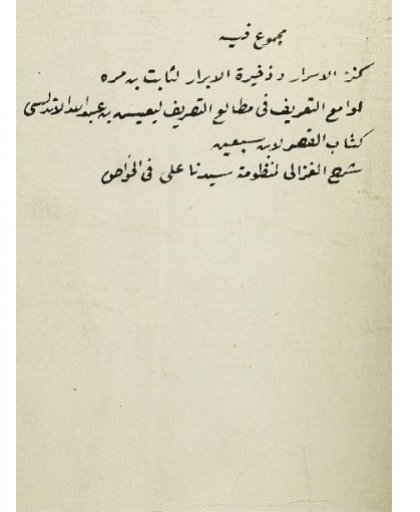 مجموع فيه
كنز الاسرار و ذخيرة الابرار لثابت بن مره
لوامع التعريف فى مطالع التصريف ليعيس بن عبدالله الاندلسى
كتاب القصر لابن سبعين
شرح الغزالى لمنظومة سيدنا على فى الخواص